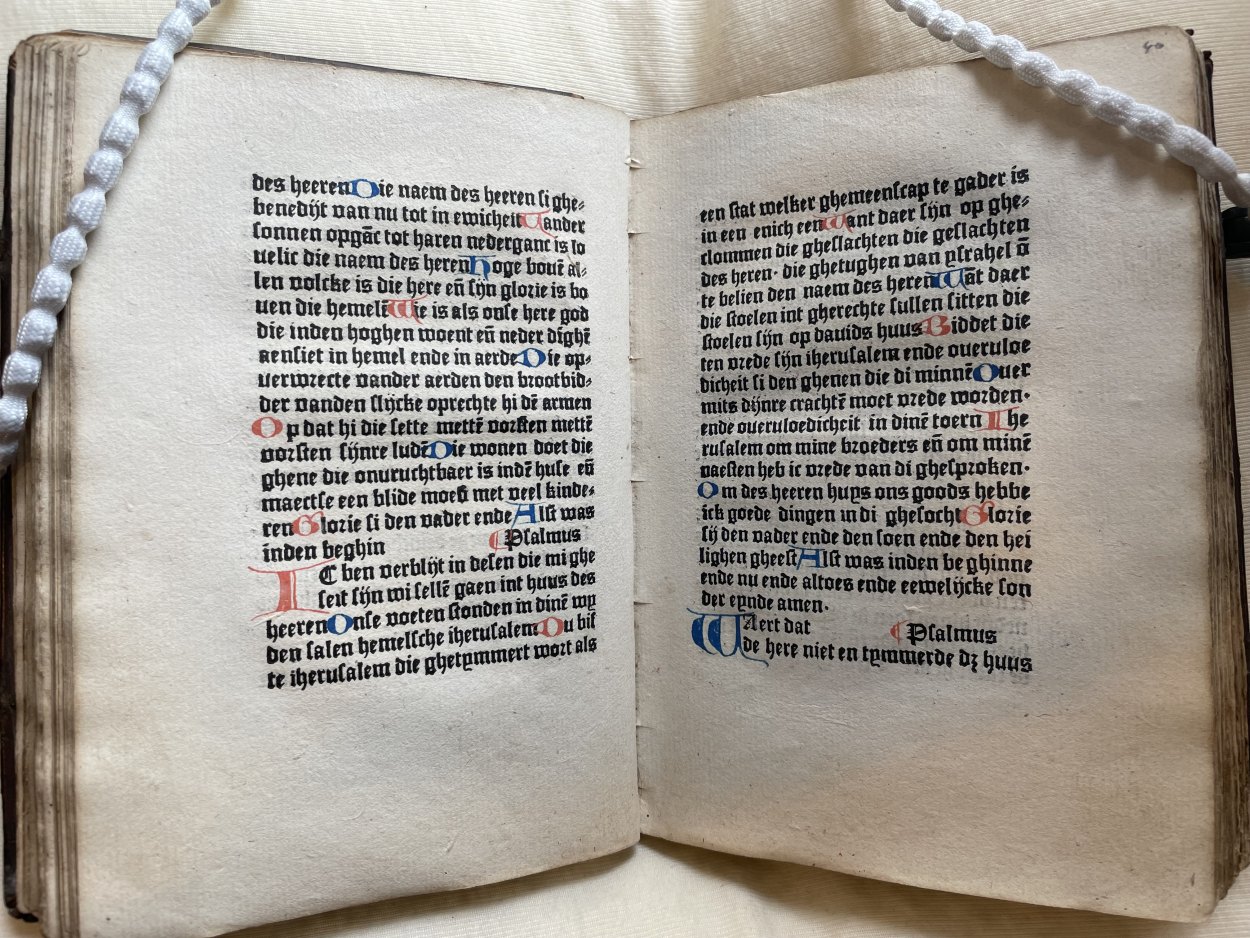 des heeren Die naem des heeren si ghe⸗
benedijt van nu tot in ewicheit Vander
sonnen opgāc tot haren nederganc is lo
uelic die naem des heren Hoge bouē al⸗
len volcke is die here eñ sijn glorie is bo
uen die hemelē Wie is als onse here god
die inden hoghen woent eñ neder dighē
aensiet in hemel ende in aerde Die op⸗
verwrecte vander aerden den brootbid⸗
der vanden slijcke oprechte hi dē armen
Op dat hi die sette mettē vorsten mettē
vorsten sijnre ludē Die wonen doet die
ghene die onuruchtbaer is indē huse eñ
maectse een blide moeď met veel kinde⸗
ren Glorie si den vader ende Alst was
inden beghin Psalmus
IC ben verblijt in desen die mi ghe
seit sijn wi sellē gaen int huus des
heeren Onse voeten stonden in dinē vy
den salen hemelsche iherusalem Du bist
te iherusalem die ghetymmert wort als
40
een stat welker ghemeenscap te gader is
in een enich een Want daer sijn op ghe⸗
clommen die gheslachten die geslachten
des heren· die ghetughen van ysrahel ū
te belien den naem des heren Wāt daer
die stoelen int gherechte sullen sitten die
stoelen sijn op dauids huus Biddet die
ten vrede sijn iherusalem ende oueruloe
dicheit si den ghenen die di minnē Ouer
mits dijnre crachtē moet vrede worden·
ende oueruloedicheit in dinē toern Ihe
rusalem om mine broeders eñ om minē
naesten heb ic vrede van di ghesproken·
Om des heeren huys ons goods hebbe
ick goede dingen in di ghesocht Glorie
sij den vader ende den soen ende den hei
lighen gheest Alst was inden beghinne
ende nu ende altoes ende eewelijcke son
der eynde amen·
WAert dat Psalmus
de here niet en tymmerde dꝫ huus